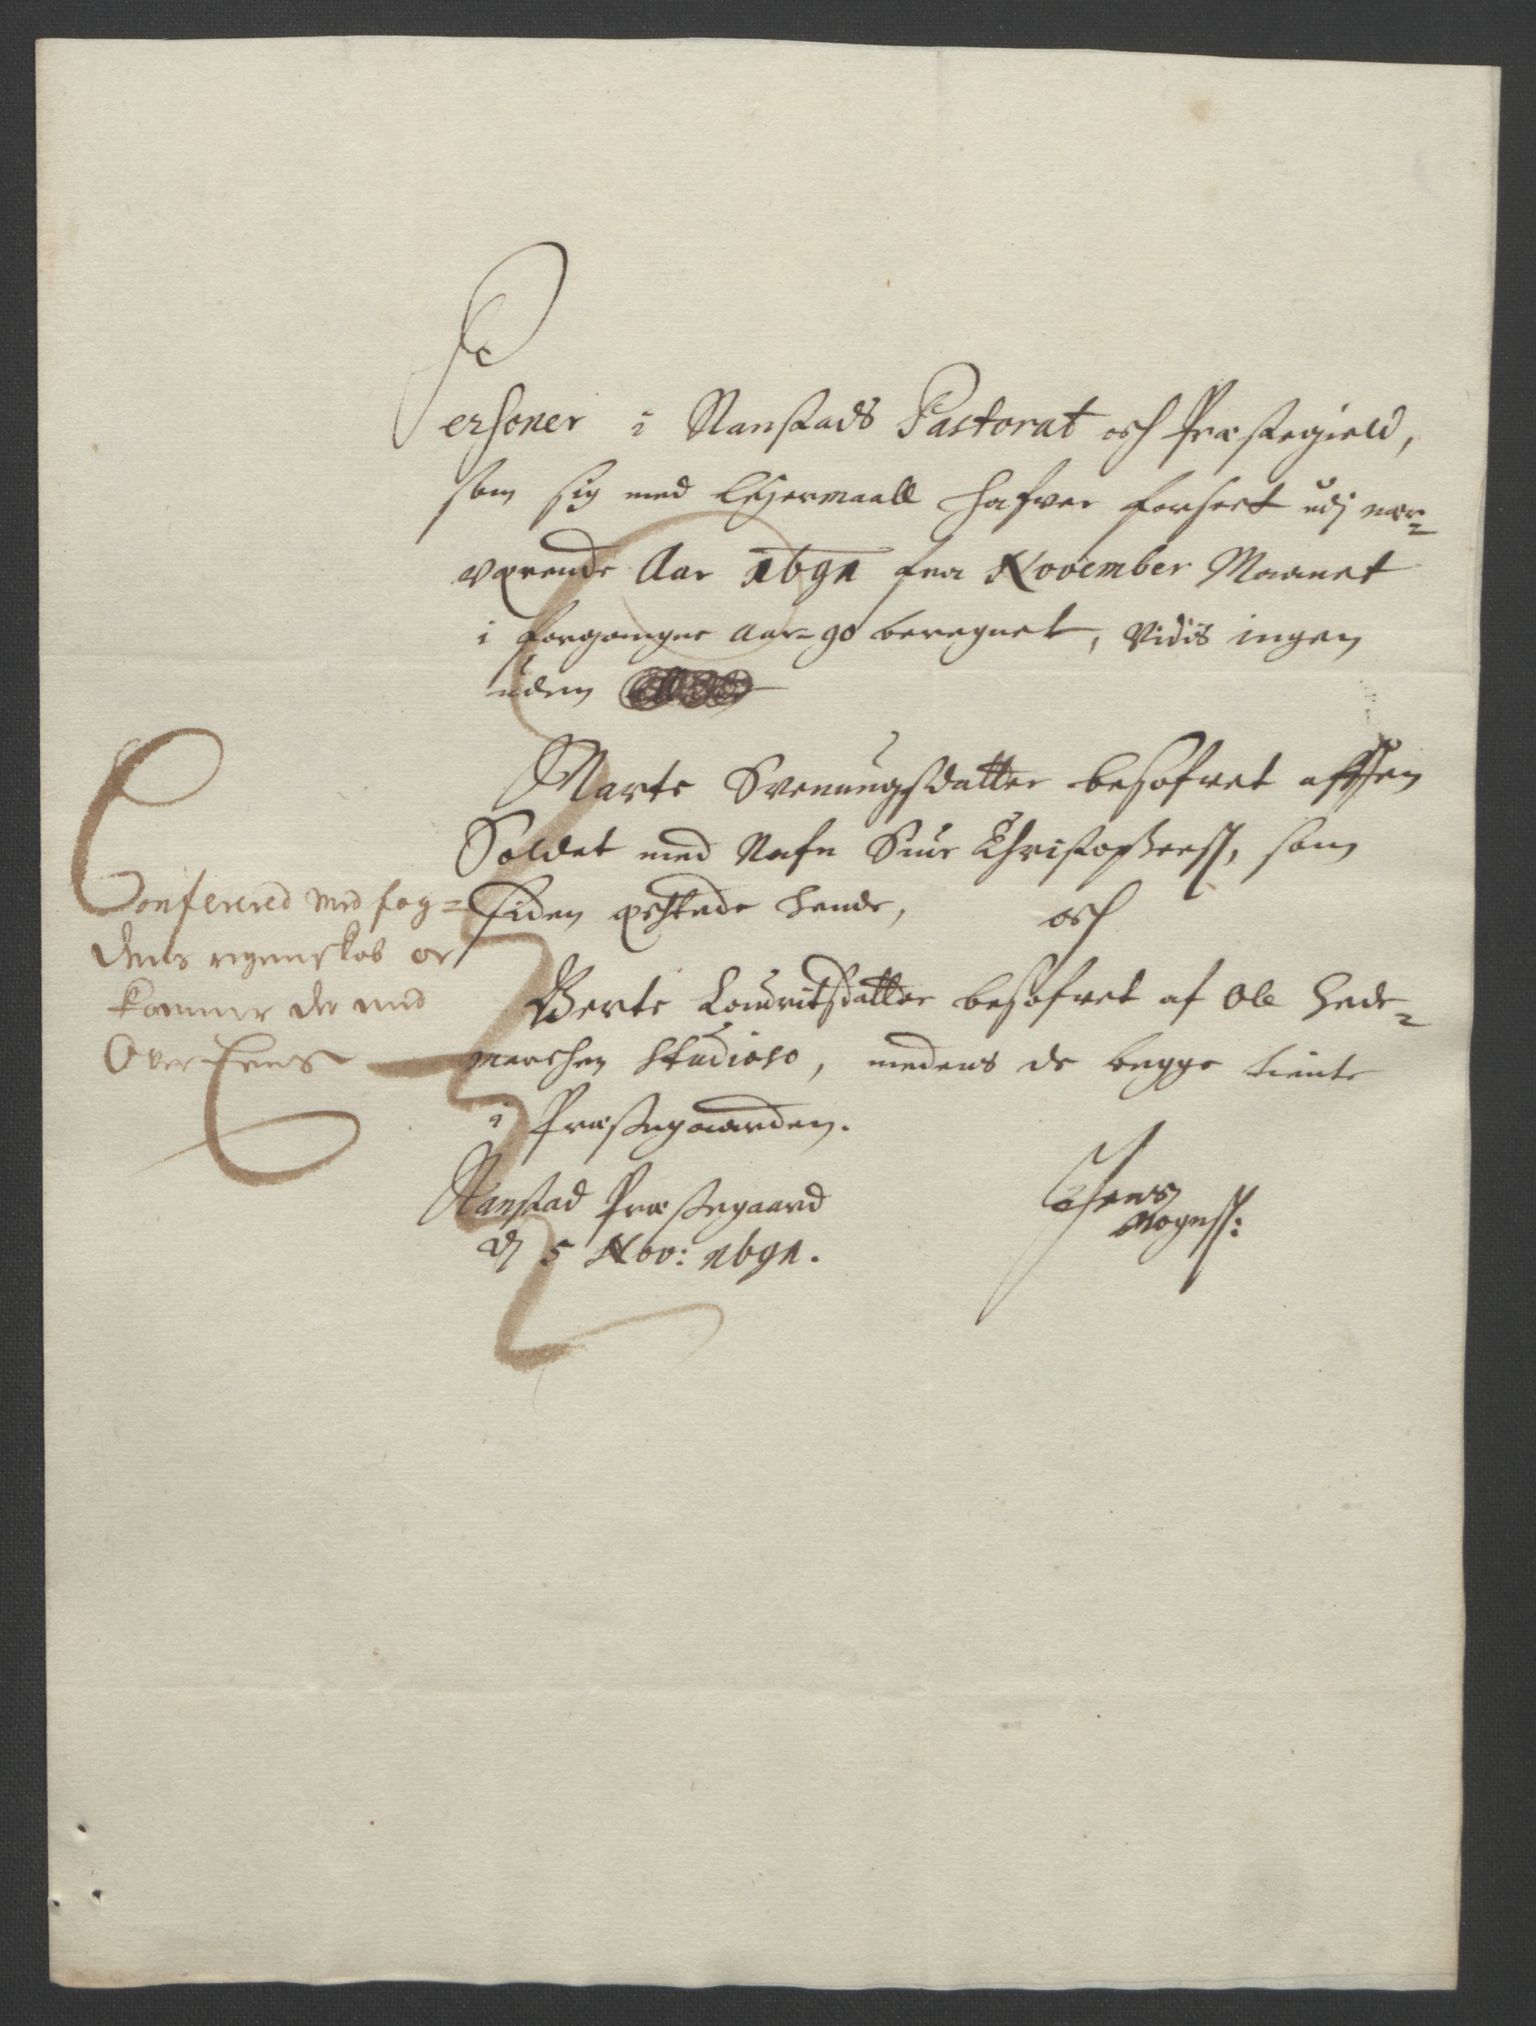 Personer i Nanstads Pastorat och Præstegield,
som sig med Leyermaall hafver forseet udj nær-
værende Aar 1691 fra November Maanet
i forgangne Aar 90 beregnet, vidis ingen
uden
Marte Svenungsdatter besofvet aff en
Soldat med Nafn Siur Christophers., som
siden ægtede hende,
och
Berte Louritsdatter besofvet af Ole Hede-
marchen Studioso, medens de begge tiente
i Præstegaarden.
Nanstad Præstegaard
d 5 Nov: 1691.
Jens
Mogens.:
Confererid med fog-
dens regenskab oc
kommer der med
Over Eens